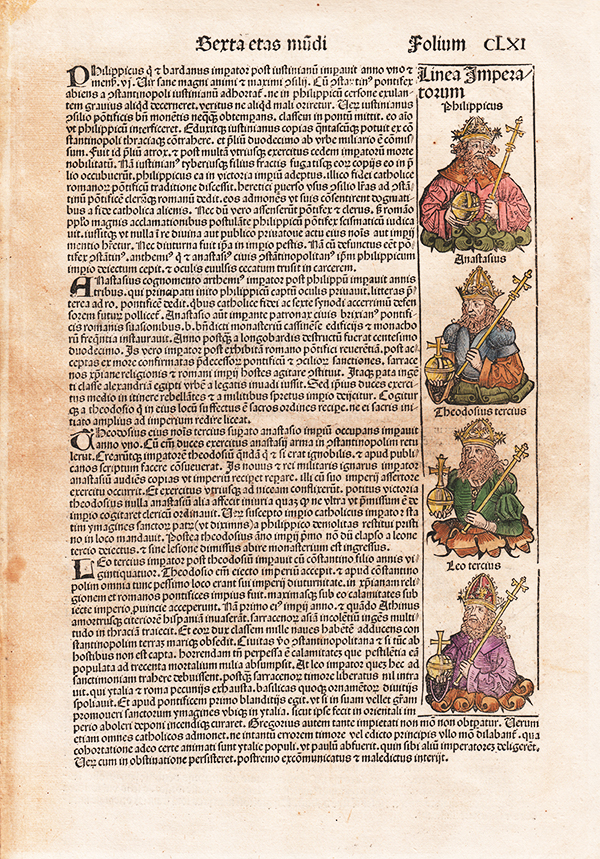 Sexta etas mūdi
Folium CLXI
Linea Impera
torum
Philippicus
Anastasius
Theodosius tercius
Leo tercius
Philippicus q̄ & bardanus impator post iustinianū impauit anno vno &
menß. vj. Vir sane magni animi & maximi ɔsilij. Cū ɔstantin⁹ pontifex
abiens a ɔstantinopoli iustinianū adhortat᷑. ne in philippicū cersone exulan-
tem grauius aliqd decerneret. veritus ne aliqd mali oriretur. Ueꝝ iustinianus
ɔsilio pontificis bn̄ monentis neqq̄ obtempans, classem in pontū mittit. eo aīo
vt philippicū interficeret. Eduxitqꝫ iustinianus copias q̄ntascūqꝫ potuit ex cō
stantinopoli thraciaqꝫ cōtrahere. et pliū duodecimo ab vrbe miliario ē cōmis
sum. Fuit id pliū atrox, & post multā vtriusqꝫ exercitus cedem impatorū morte
nobilitatū. Nā iustinian⁹ tyberiusqꝫ filius fractis fugatisqꝫ eoꝝ copijs eo in p̄
lio occubuerūt. philippicus ea in victoria impiū adeptus. illico fidei catholice
romanorꝫ pōtificū traditione discessit. heretici ꝓuerso vsus ɔsilio lr̄as ad ɔstā-
tinū pōtificē clerūqꝫ romanū dedit. eos admonēs vt suis cōsentirent dogmati
bus a fide catholica alienis. Nec dū vero assenserūt pōtifex & clerus, & romāo
pplo magnis acclamationibus postulāte philippicū pōtifex scismaticū iudica
uit. iussitqꝫ vt nulla ī re diuina aut publico priuatoue actu eius noīs aut impij
mentio hr̄etur. Nec diuturna fuit ip̄a in impio pestis. Nā cū defunctus eēt pō-
tifex ɔstātin⁹. anthemi⁹ q̄ & anastasi⁹ ciuis ɔstātinopolitan⁹ ip̄m philippicum
impio deiectum cepit. & oculis euulsis cecatum trusit in carcerem.
Anastasius cognomento arthemi⁹ impator post philippū impauit annis
tribus. qui principatū inito philippicū captū oculis priuauit. litteras p̄-
terea ad ro. pontificē dedit. qbus catholice fidei ac sexte synodi accerrimū defen
sorem futurꝫ pollicet᷑. Anastasio aūt impante patronax ciuis brixian⁹ pontifi-
cis romanis suasionibus. b. bn̄dicti monasteriū cassinēse edificijs & monacho
rū frequētia instaurauit. Anno postqꝫ a longobardis destructū fuerat centesimo
duodecimo. Is vero impator post exhibitā romano pōtifici reuerētiā, post ac-
ceptas ex more confirmatas p̄decessoꝝ pontificū & ɔcilioꝝ sanctiones, sarrace
nos xp̄iane religionis & romani impij hostes agitare ɔstituit. Itaqꝫ pata ingē
ti classe alexandriā egipti vrbē a legatis inuadi iussit. Sed ip̄ius duces exerci-
tus medio in itinere rebellātes & a militibus spretus impio deijcitur. Cogitur
qꝫ a theodosio q̄ in eius locū suffectus ē sacros ordines recipe. ne ei sacris ini
tiato amplius ad imperium redire liceat.
Theodosius eius noīs tercius supato anastasio impiū occupans impauit
anno vno. Cū em̄ duces exercitus anastasij arma in ɔstantinopolim retu
lerūt. Creaūtqꝫ impatorē theodosiū q̄ndā q̄ & si erat ignobilis, & apud publi-
canos scriptum facere cōsueuerat. Is nouus & rei militaris ignarus impator
anastasiū audiēs copias vt imperiū recipet repare. illi cū suo imperij assertore
exercitu occurrit. Et exercitus vtriusqꝫ ad niceam conflixerūt. potitus victoria
theodosius nulla anastasiū alia affecit iniuria quaꝫ q̄ ne vltra vt pmissum ē de
impio cogitaret clericū ordinauit. Ueꝝ suscepto impio catholicus impator sta
tim ymagines sanctoꝝ patꝝ (vt diximus) a philippico demolitas restitui pristi
no in loco mandauit. Postea theodosius āno impij p̄mo nō dū elapso a leone
tercio deiectus, & sine lesione dimissus abire monasterium est ingressus.
Leo tercius impator post theodosiū impauit cū cōstantino filio annis vi-
gintiquatuor. Theodosio em̄ eiecto imperiū accepit. & apud cōstantino
polim omnia tunc pessimo loco erant sui imperij diuturnitate. in xp̄ianam reli-
gionem et romanos pontifices impius fuit. maximasqꝫ sub eo calamitates sub
iecte imperio, puincie acceperunt. Nā primo ei⁹ impij anno. & quādo Athinus
amorrusqꝫ citeriorē hispaniā inuaserāt. sarracenorꝫ asiā incolētiū ingēs multi
tudo in thraciā traiecit. Et eorꝫ dux classem mille naues habētē adducens con
stantinopolim terraꝫ mariqꝫ obsedit. Ciuitas v̄o ɔstantinopolitana & si tūc ab
hostibus non est capta. horrendam tn̄ perpessa ē calamitatez. que pestilētia eā
populata ad trecenta mortalium milia absumpsit. At leo impator quez hec ad
sanctimoniam trahere debuissent. postqꝫ sarracenorꝫ timore liberatus nil intra
uit. qui ytalia & roma pecunijs exhausta. basilicas quoqꝫ ornamētorꝫ diuitijs
spoliauit. Et apud pontificem primo blanditijs egit. vt is in suam vellet gr̄am
promoueri sanctorum ymagines vbiqꝫ in ytalia. sicut ipse fecit in orientali im
perio aboleri deponi incendiqꝫ curaret. Gregorius autem tante impietati non mō non obtpatur. Uerum
etiam omnes catholicos admonet. ne intantū errorem timore vel edicto principis vllo mō dilabant᷑. qua
cohortatione adeo certe animati sunt ytalie populi. vt paulū abfuerit. quin sibi aliū imperatoreꝫ deligeret.
Ueꝝ cum in obstinatione persisteret. postremo excōmunicatus & maledictus interijt.